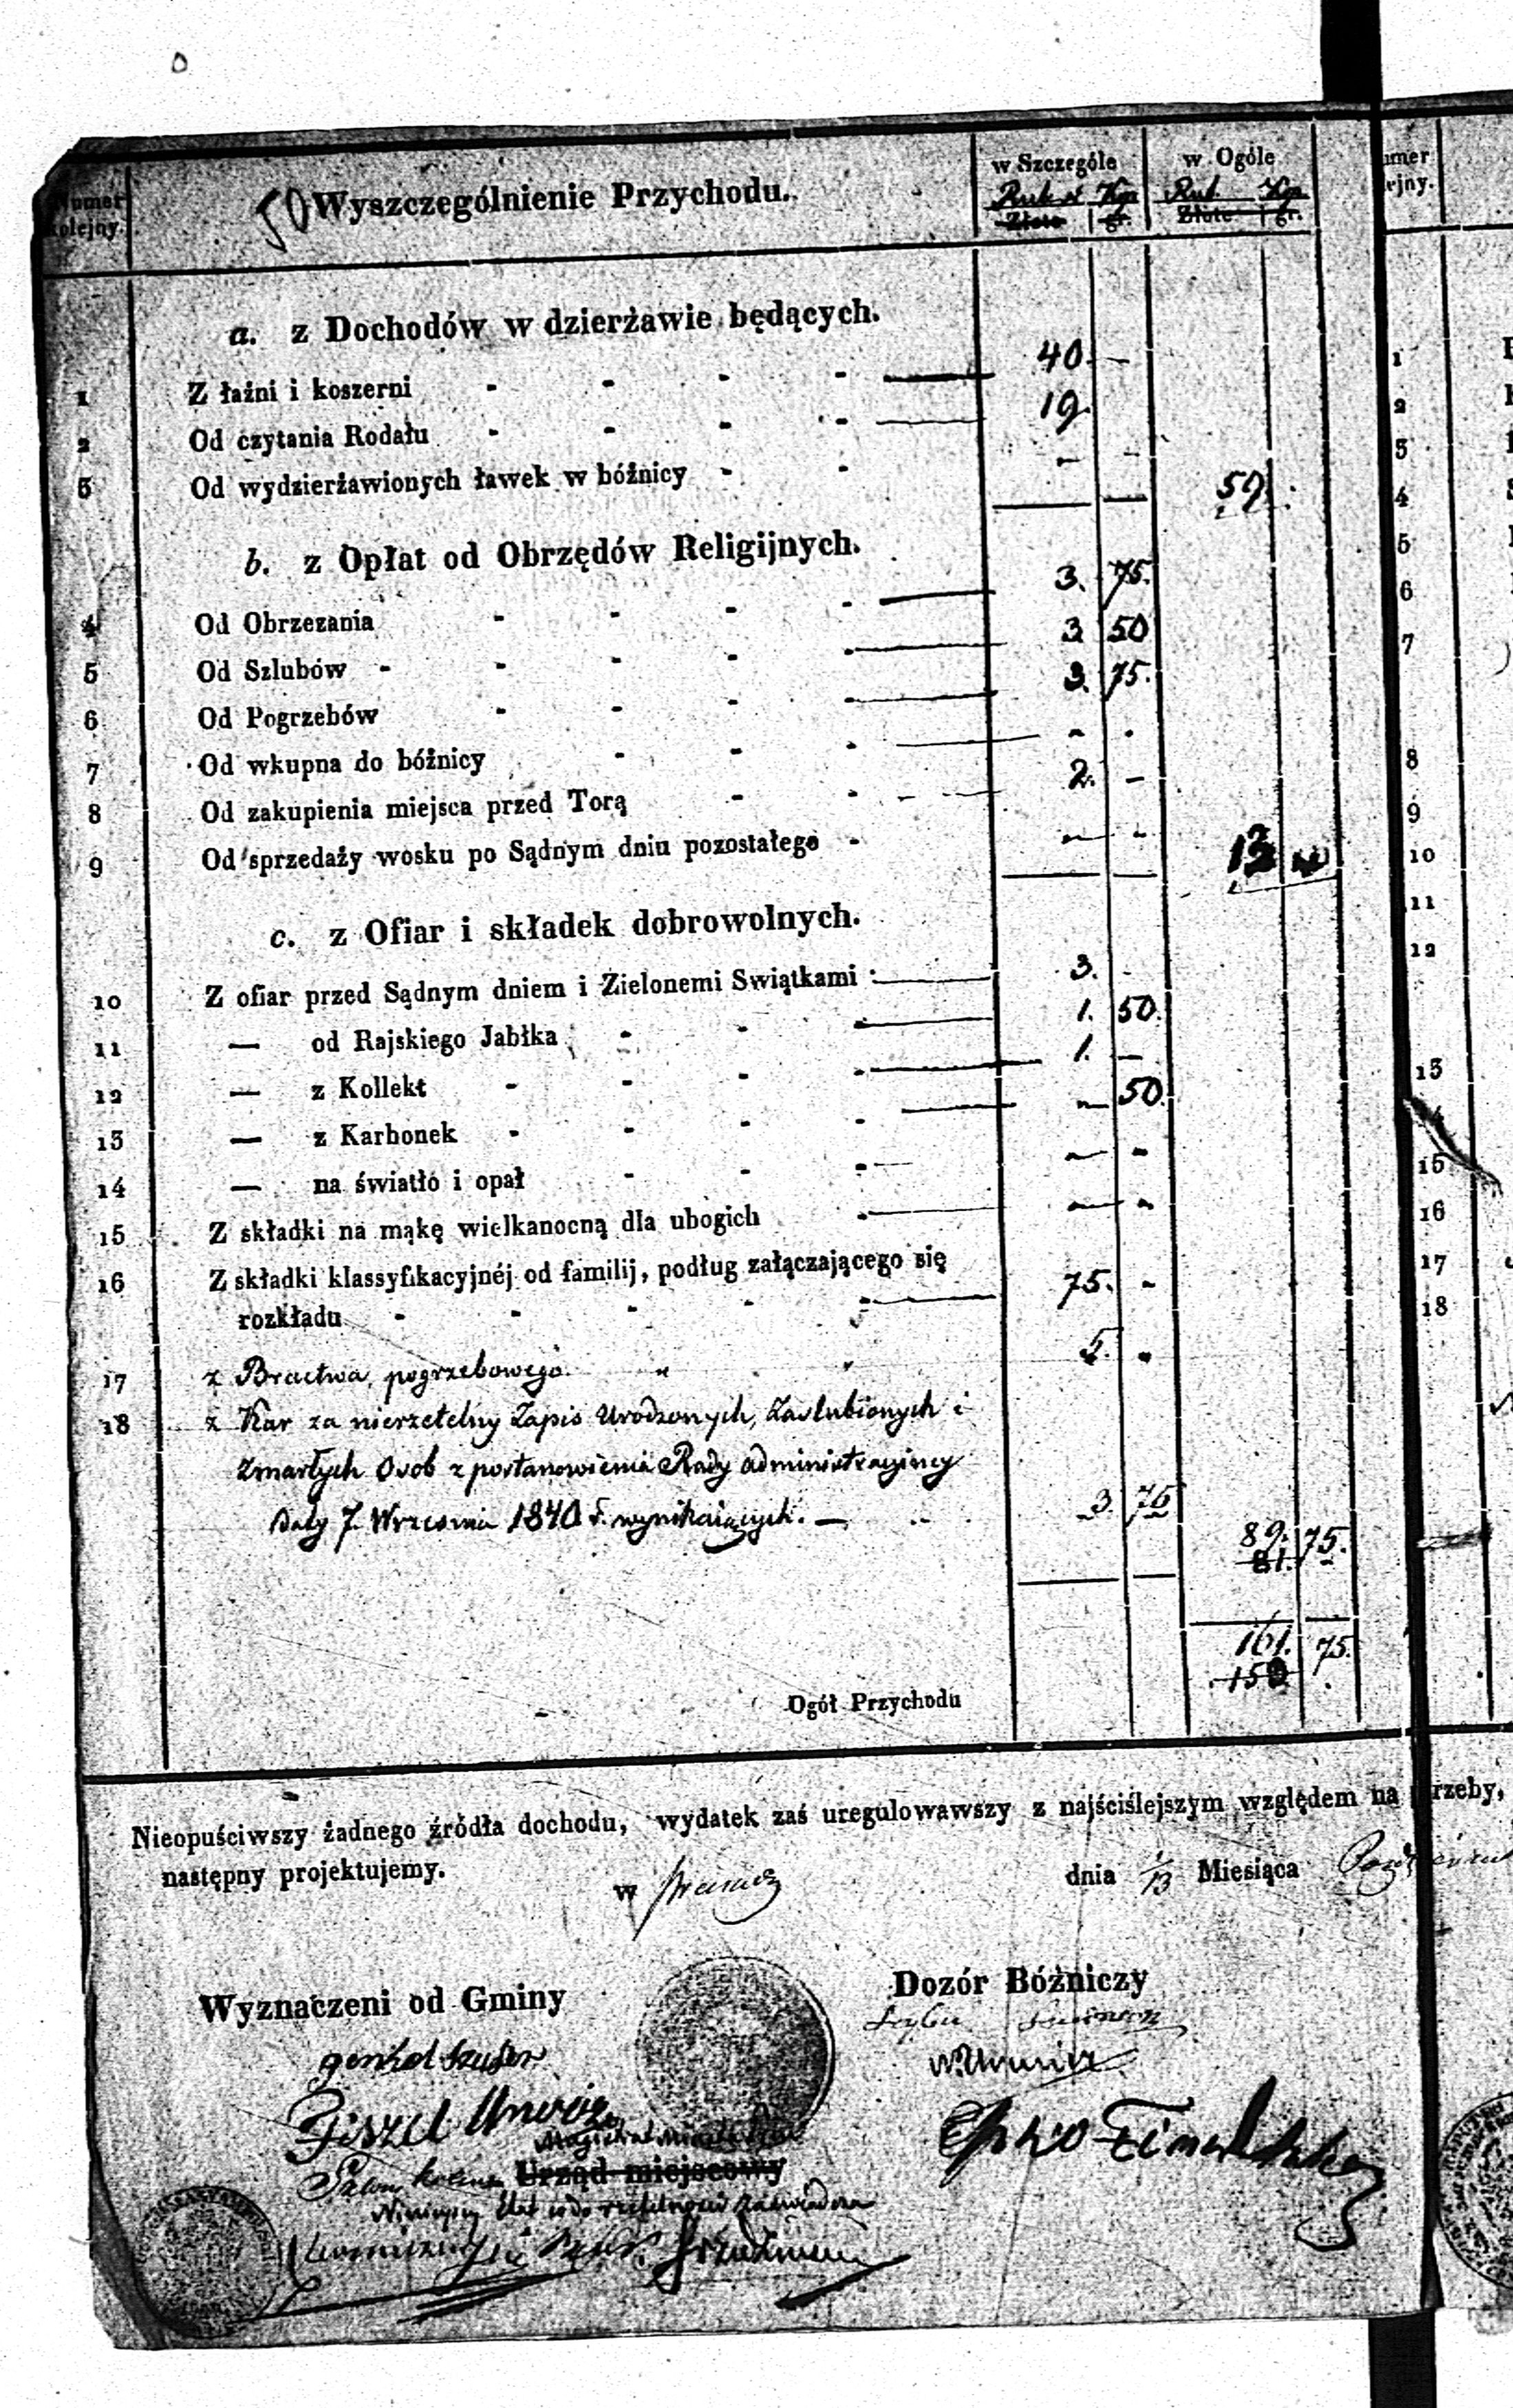 Numer kolejny. 50 Wyszczególnienie Przychodu. w Szczególe w Ogóle
Rub sr Kop Rub. Kop
Złote gr. Złote gr.
a. z Dochodów w dzierżawie będących.
1 Z łaźni i koszerni - - - - 40. —
2 Od czytania Rodału - - - - 19.
3 Od wydzierżawionych ławek w bóżnicy - - — — 59.
b. z Opłat od Obrzędów Religijnych.
4 Od Obrzezania - - - - 3. 75.
5 Od Szlubów - - - - - 3 50
6 Od Pogrzebów - - - - 3. 75.
7 Od wkupna do bóżnicy - - -
8 Od zakupienia miejsca przed Torą - - 2. —
9 Od sprzedaży wosku po Sądnym dniu pozostałego - — - 13
c. z Ofiar i składek dobrowolnych.
10 Z ofiar przed Sądnym dniem i Zielonemi Swiątkami 3. -
11 — od Rajskiego Jabłka - - - 1. 50.
12 — z Kollekt - - - - 1. —
13 — z Karbonek - - - - — 50.
14 — na światło i opał - - - — -
15 Z składki na mąkę wielkanocną dla ubogich - — -
16 Z składki klassyfikacyjnéj od familij, podług załączającego się
rozkładu - - - - - 75. -
17 z Bractwa pogrzebowego 5. -
18 z Kar za nierzetelny Zapis Urodzonych, Zaslubionych i
Zmarłych Osob z postanowienia Rady administracyiney
daty 7. Wrzesnia 1840 r. wynikaiących. — 3. 75
89. 75.
81.
161. 75.
150
Ogół Przychodu
Nieopuściwszy żadnego źródła dochodu, wydatek zaś uregulowawszy z najściślejszym względem na rzeby,
następny projektujemy.
w dnia 1/13 Miesiąca
Wyznaczeni od Gminy Dozór Bóżniczy
Urząd miejscowy
umer
ejny.
1
2
3
4
5
6
7
8
9
10
11
12
13
15
16
17
18